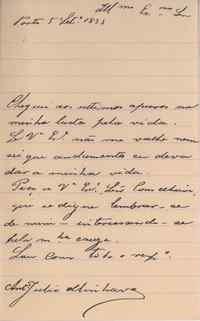 Illmo Exmo Snr
Porto 5 Set. 1893
Cheguei aos ultimos apuros na
minha lucta pela vida.
Se Va Exa não me valhe nem
sei que andamento eu deva
dar a minha vida.
Peço a Va Exa Snr Conselheiro,
que se digne lembrar-se
de mim - interessando-se
pela ma causa.
Sou com
Julio